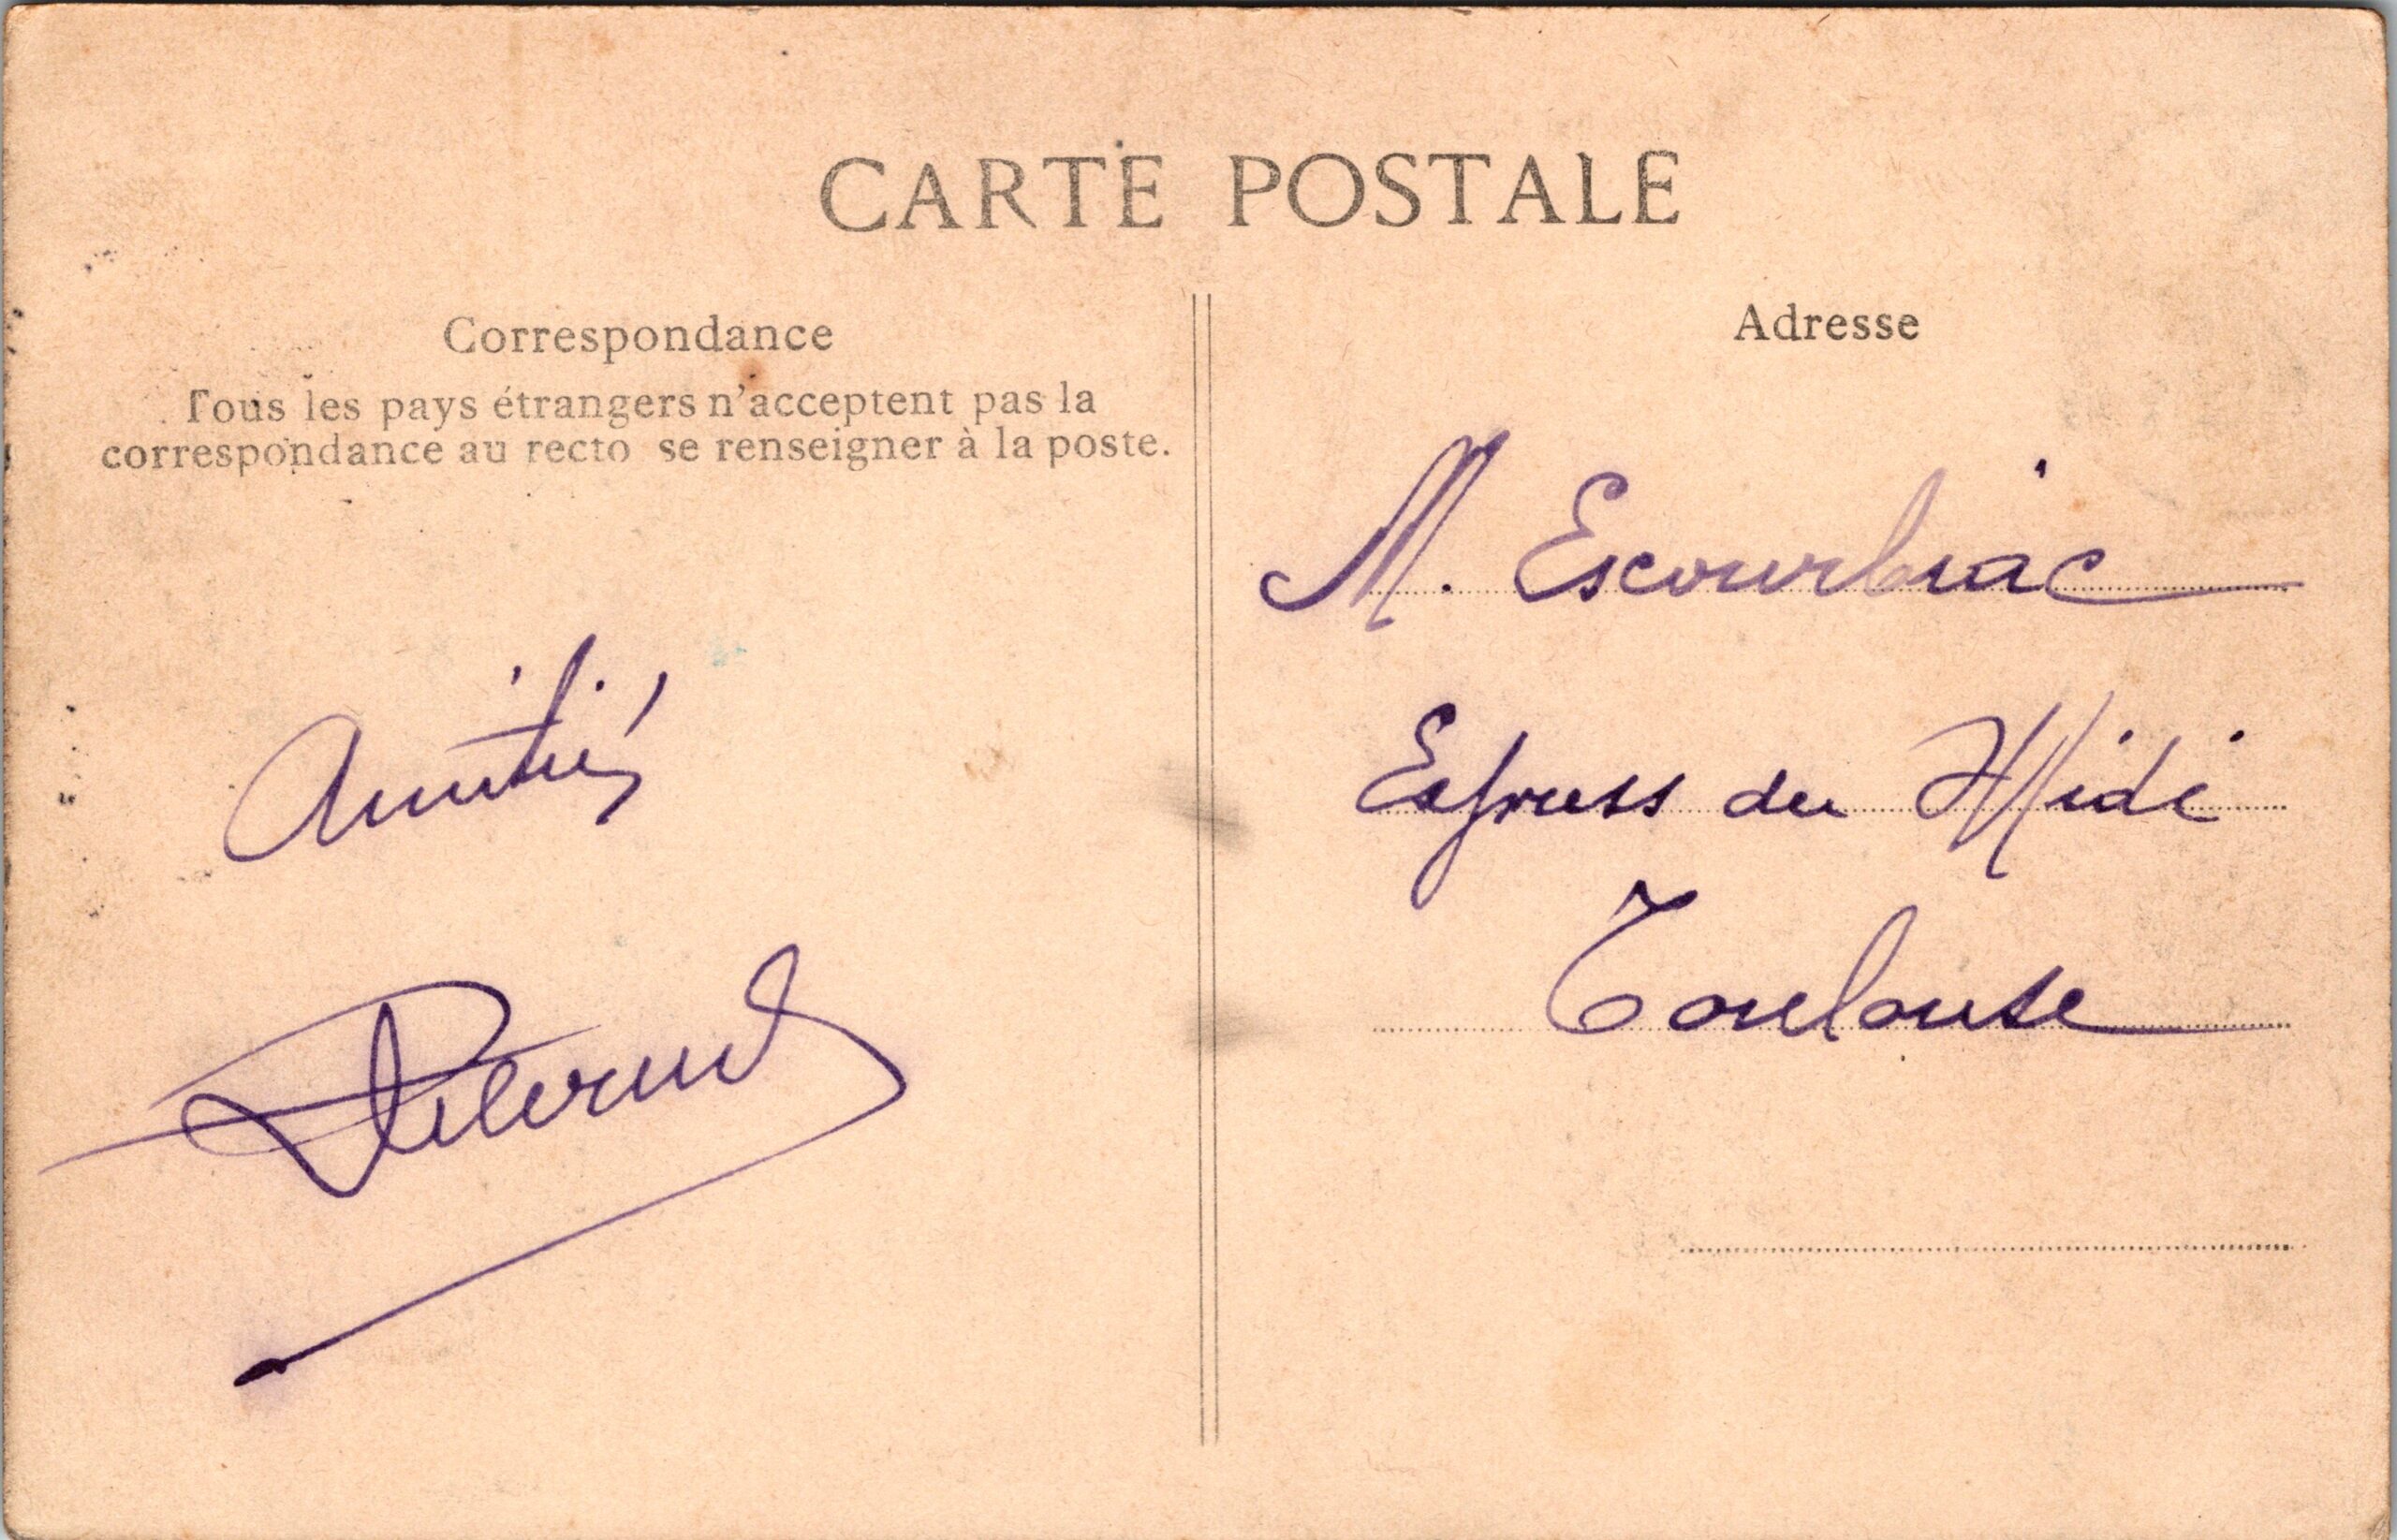 CARTE POSTALE
Correspondance
Tous les pays étrangers n'acceptent pas la
correspondance au recto se renseigner à la poste.
Amitiés
Adresse
M. Escourbiac
Express du Midi
Toulouse